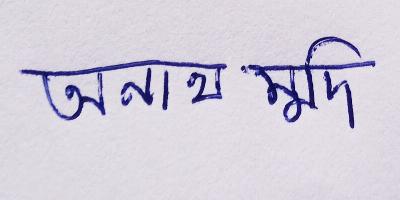 অনাথ মুদি